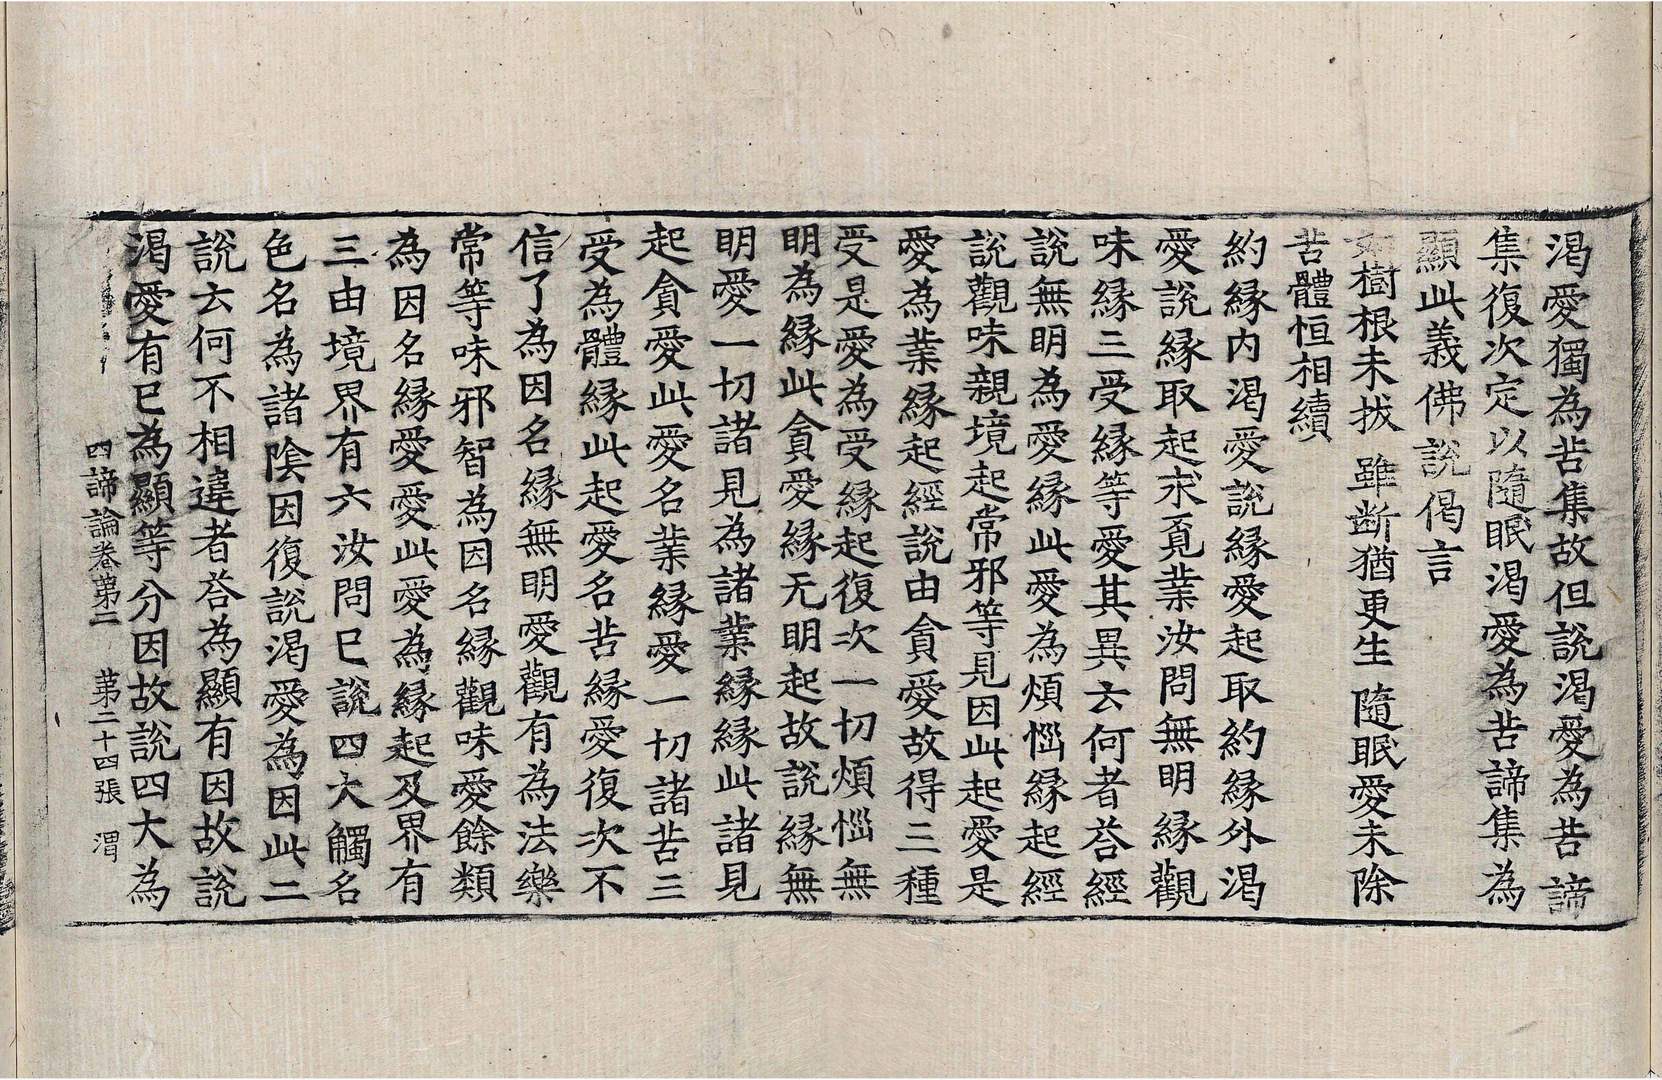 渴愛獨為苦集故但說渴愛為苦諦
集復次定以隨眠渴愛為苦諦集為
顯此義佛說偈言
如樹根未拔 雖斷猶更生 隨眠愛未除
苦體恒相續
約緣內渴愛說緣愛起取約緣外渴
愛說緣取起求覓業汝問無明緣觀
味緣三受緣等愛其異云何者荅經
說無明為愛緣此愛為煩惱緣起經
說觀味親境起常邪等見因此起愛是
愛為業緣起經說由貪愛故得三種
受是愛為受緣起復次一切煩惱無
明為緣此貪愛緣无明起故說緣無
明愛一切諸見為諸業緣緣此諸見
起貪愛此愛名業緣愛一切諸苦三
受為體緣此起愛名苦緣愛復次不
信了為因名緣無明愛觀有為法樂
常等味邪智為因名緣觀味愛餘類
為因名緣愛愛此愛為緣起及界有
三由境界有六汝問已說四大觸名
色名為諸陰因復說渴愛為因此二
說云何不相違者荅為顯有因故說
渴愛有已為顯等分因故說四大為
四諦論卷第二 第二十四張 渭